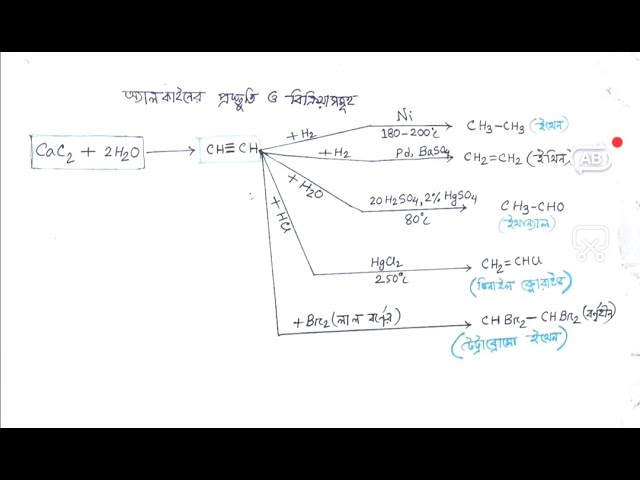 অ্যালকাইনের প্রস্তুতি ও বিক্রিয়াসমূহ
CaC2 + 2H2O → CH≡CH
+H2 Ni 180-200°C CH3-CH3 (ইথেন)
+H2 Pd, BaSO4 CH2=CH2 (ইথিন)
+H2O 20H2SO4, 2% HgSO4 80°C CH3-CHO
(ইথান্যাল)
+HCl HgCl2 250°C CH2=CHCl
(ভিনাইল ক্লোরাইড)
+Br2 (লাল বর্ণের) CHBr2-CHBr2 (বর্ণহীন)
(টেট্রাব্রোমো ইথেন)
AB